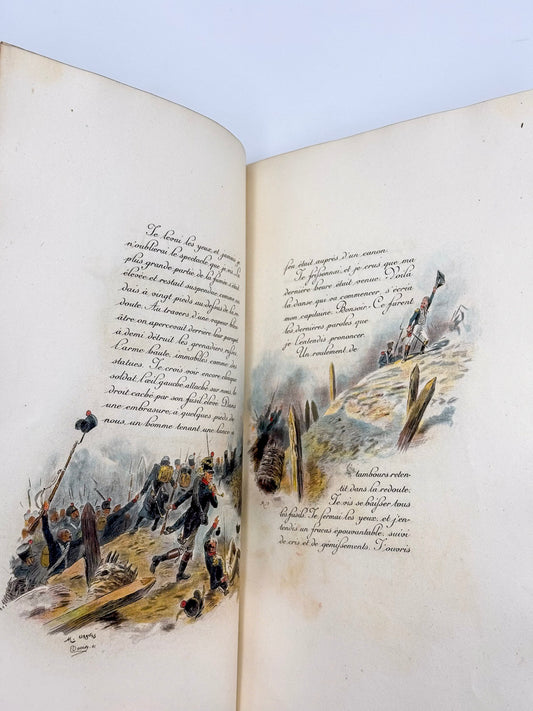 Je levai les yeux, et jamais je
n'oublierai le spectacle que je vis. La
plus grande partie de la fumée s'était
élevée et restait suspendue comme un
dais à vingt pieds au-dessus de la re-
doute. Au travers d'une vapeur bleu-
âtre, on apercevait derrière leur parapet
à demi détruit les grenadiers russes,
l'arme haute, immobiles comme des
statues. Je crois voir encore chaque
soldat, l'œil gauche attaché sur nous, le
droit caché par son fusil élevé. Dans
une embrasure, à quelques pieds de
nous, un homme tenant une lance à
feu était auprès d'un canon.
Je frissonnai, et je crus que ma
dernière heure était venue. Voilà
la danse qui va commencer, s'écria
mon capitaine. Bonsoir. Ce furent
les dernières paroles que
je l'entendis prononcer.
Un roulement de
tambours reten-
tit dans la redoute.
Je vis se baisser tous
les fusils. Je fermai les yeux, et j'en-
tendis un fracas épouvantable, suivi
de cris et de gémissements. J'ouvris